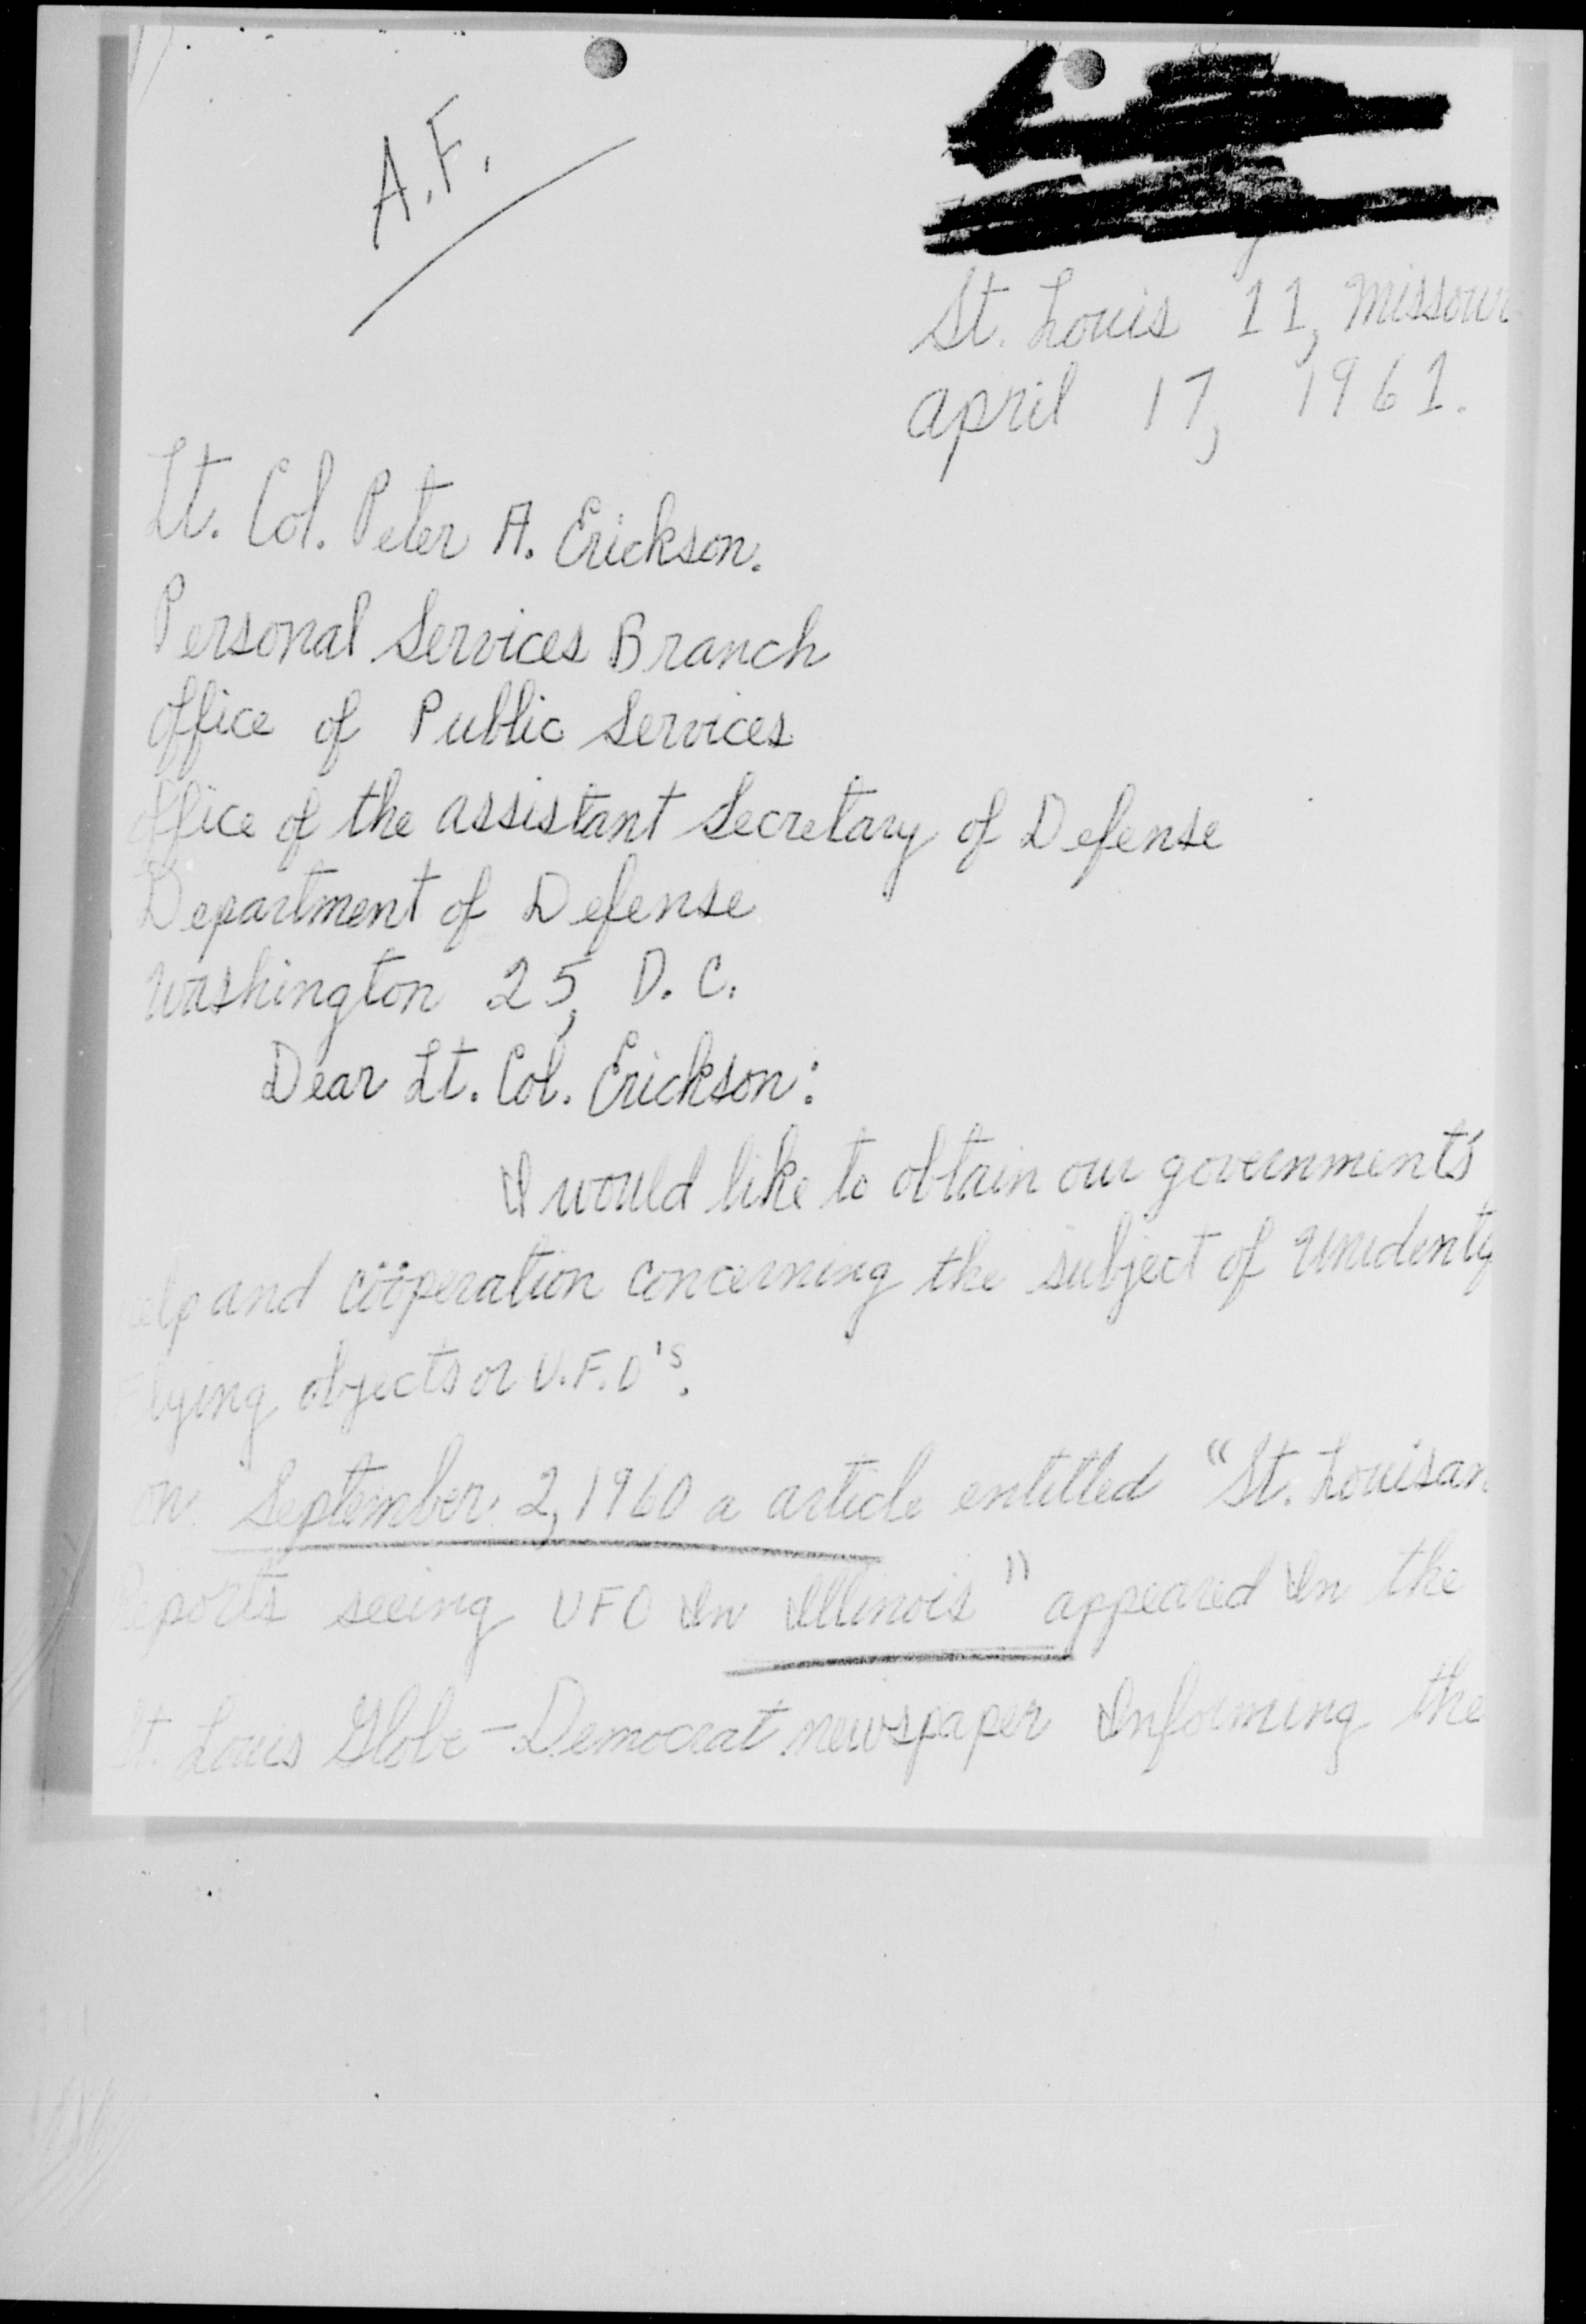 A.F.
St. Louis 11, Missour
april 17, 1961.
Lt. Col. Peter A. Erickson.
Personal Services Branch
office of Public Services
office of the assistant Secretary of Defense
Department of Defense
Washington 25, D.C.
Dear Lt. Col. Erickson:
I would like to obtain our governments'
elp and coöperation concerning the subject of Unidenty
Flying objects or U.F.O's.
on September 2, 1960 a article entitled "St. Louisan
Reports seeing UFO In Illinois" appeared In the
St. Louis Globe-Democrat newspaper Informing the